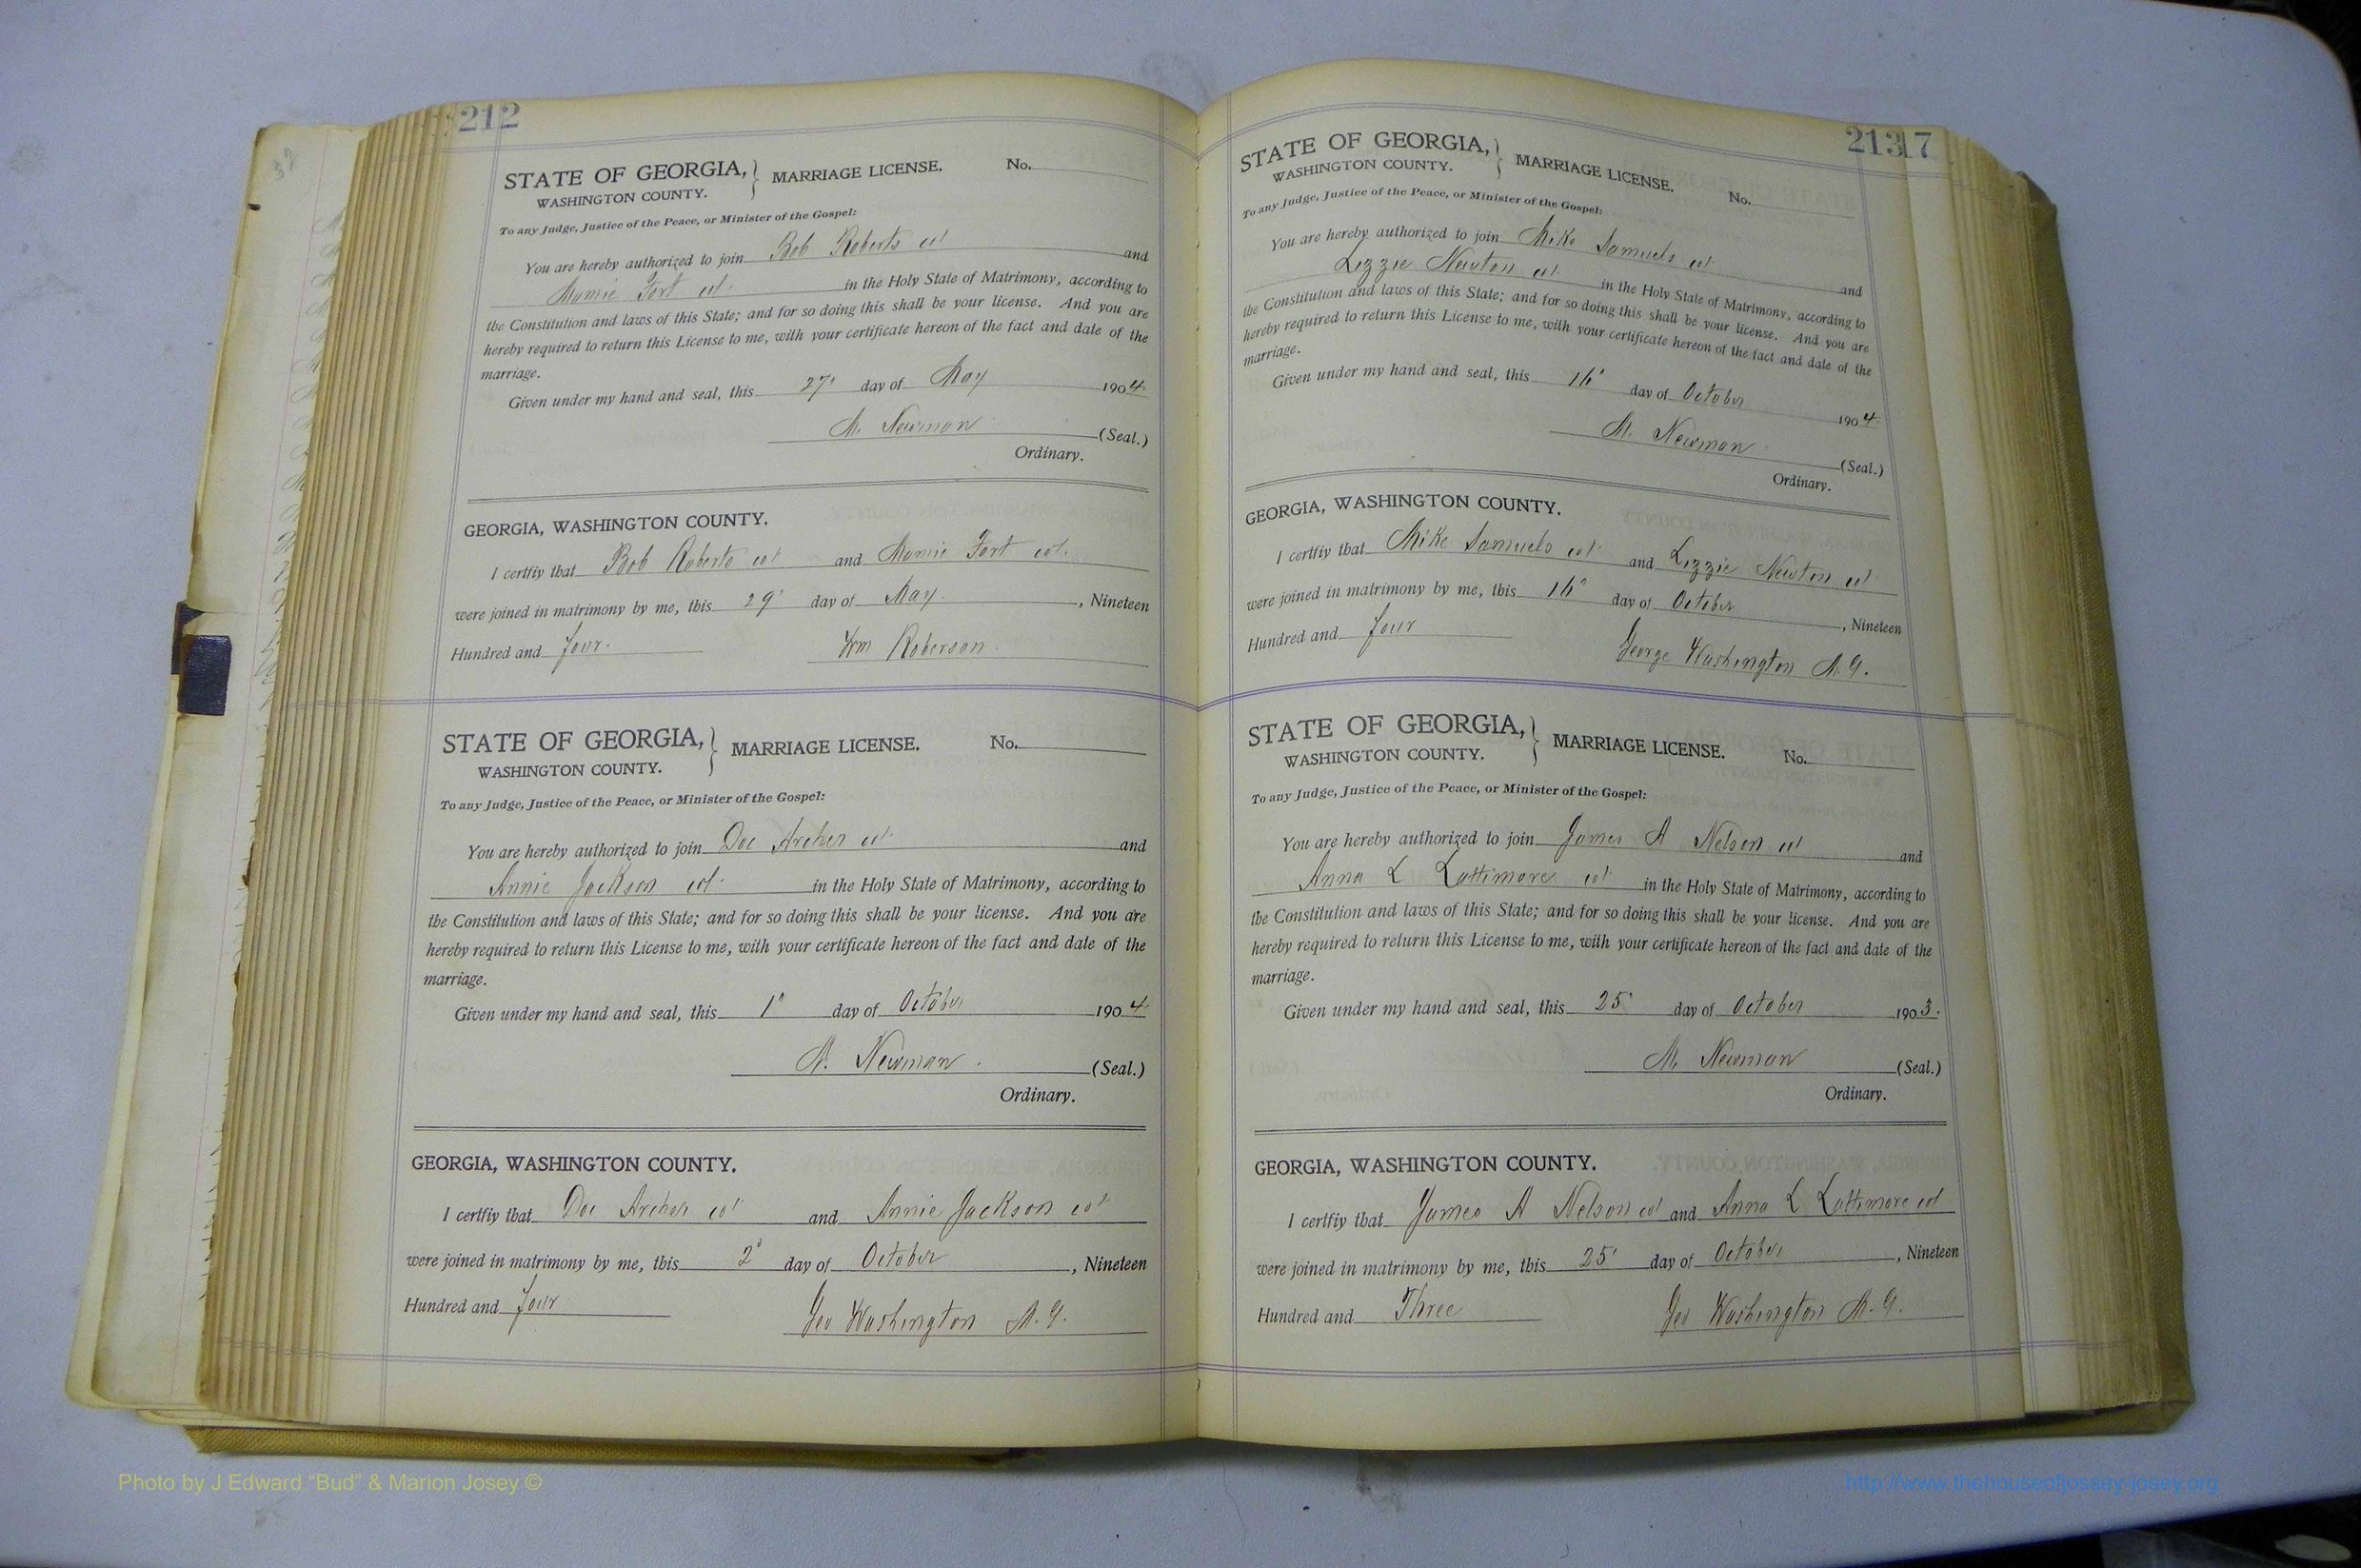 212
STATE OF GEORGIA, } MARRIAGE LICENSE. No.
WASHINGTON COUNTY.
To any Judge, Justice of the Peace, or Minister of the Gospel:
You are hereby authorized to join Bob Roberts col and
Mamie Fort col. in the Holy State of Matrimony, according to
the Constitution and laws of this State; and for so doing this shall be your license. And you are
hereby required to return this License to me, with your certificate hereon of the fact and date of the
marriage.
Given under my hand and seal, this 27" day of May 1904.
M. Newman (Seal.)
Ordinary.
GEORGIA, WASHINGTON COUNTY.
I certfiy that Bob Roberts col and Mamie Fort col.
were joined in matrimony by me, this 29" day of May. , Nineteen
Hundred and four. Wm Roberson.
STATE OF GEORGIA, } MARRIAGE LICENSE. No.
WASHINGTON COUNTY.
To any Judge, Justice of the Peace, or Minister of the Gospel:
You are hereby authorized to join Doc Archer col. and
Annie Jackson col. in the Holy State of Matrimony, according to
the Constitution and laws of this State; and for so doing this shall be your license. And you are
hereby required to return this License to me, with your certificate hereon of the fact and date of the
marriage.
Given under my hand and seal, this 1" day of October 1904.
M. Newman. (Seal.)
Ordinary.
GEORGIA, WASHINGTON COUNTY.
I certfiy that Doc Archer col and Annie Jackson col
were joined in matrimony by me, this 2" day of October , Nineteen
Hundred and four Geo Washington M.G.
213 17
STATE OF GEORGIA, } MARRIAGE LICENSE. No.
WASHINGTON COUNTY.
To any Judge, Justice of the Peace, or Minister of the Gospel:
You are hereby authorized to join Mike Samuels col and
Lizzie Newton col. in the Holy State of Matrimony, according to
the Constitution and laws of this State; and for so doing this shall be your license. And you are
hereby required to return this License to me, with your certificate hereon of the fact and date of the
marriage.
Given under my hand and seal, this 16" day of October 1904.
M. Newman (Seal.)
Ordinary.
GEORGIA, WASHINGTON COUNTY.
I certfiy that Mike Samuels col and Lizzie Newton col
were joined in matrimony by me, this 16" day of October , Nineteen
Hundred and four George Washington M.G.
STATE OF GEORGIA, } MARRIAGE LICENSE. No.
WASHINGTON COUNTY.
To any Judge, Justice of the Peace, or Minister of the Gospel:
You are hereby authorized to join James A Nelson col and
Anna L Lattimore col in the Holy State of Matrimony, according to
the Constitution and laws of this State; and for so doing this shall be your license. And you are
hereby required to return this License to me, with your certificate hereon of the fact and date of the
marriage.
Given under my hand and seal, this 25" day of October 1903.
M. Newman (Seal.)
Ordinary.
GEORGIA, WASHINGTON COUNTY.
I certfiy that James A Nelson col and Anna L Lattimore col
were joined in matrimony by me, this 25" day of October , Nineteen
Hundred and Three Geo Washington M.G.
Photo by J Edward “Bud” & Marion Josey ©
http://www.thehouseofjossey-josey.org